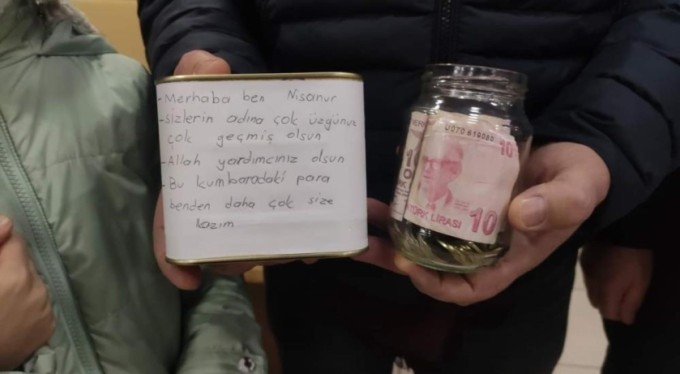 - Merhaba ben Nisanur
- sizlerin adına çok üzgünüm
çok geçmiş olsun
- Allah yardımcınız olsun
- Bu kumbaradaki para
benden daha çok size
lazım
10
10
TÜRK LİRASI